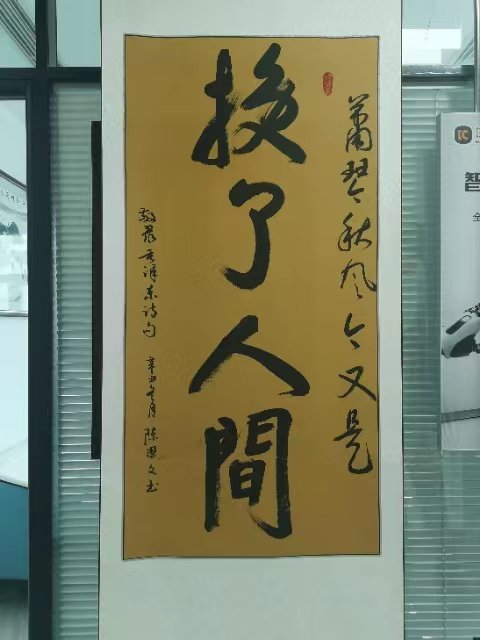 蕭瑟秋风今又是
换了人間
敬录毛泽东诗句
辛丑 月 陈 文书
智
全